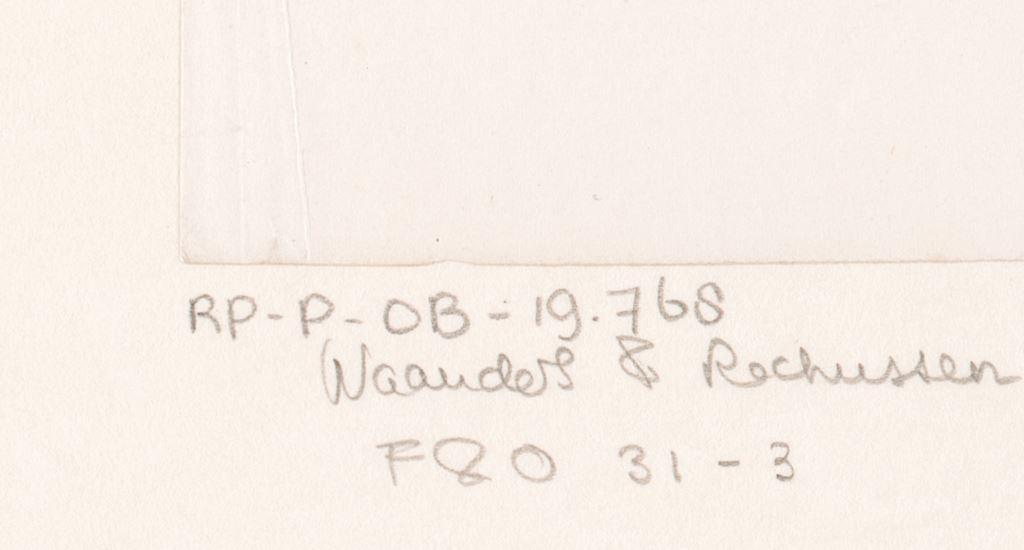 RP-P-OB-19.768
Waanders & Rochussen
F80 31-3